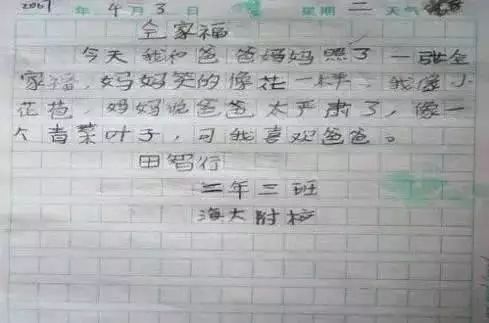 2007 年 4 月 3 日 星期 二 天气
全家福
今天我和爸爸妈妈照了一张全
家福,妈妈笑的像花一样,我像小
花苞,妈妈说爸爸太严肃了,像一
个青菜叶子,可我喜欢爸爸。
田智行
二年三班
海大附校